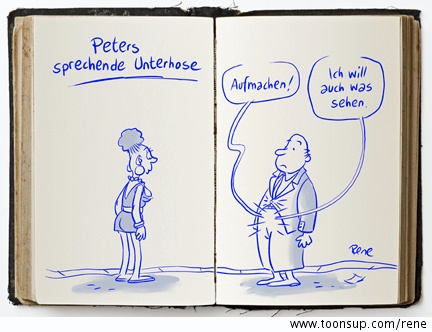 Peters
sprechende Unterhose
Aufmachen!
Ich will
auch was
sehen.
Rene
www.toonsup.com/rene